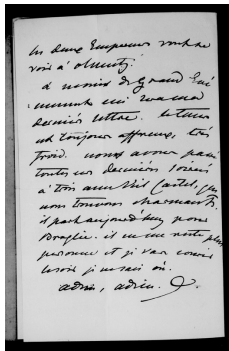 les deux Empereurs vont se
voir à Olmutz.
à moins de Grand Evé
nements
dernière lettre. le tems
est toujours affreux, très
froid. nous avons passé
toutes ces dernières soirées
à trois avec
nous trouvons charmant.
il part aujourd'huy pour
Broglie. il ne me reste plus
personne et je vais courir
le soir je ne sais où.
adieu, adieu.